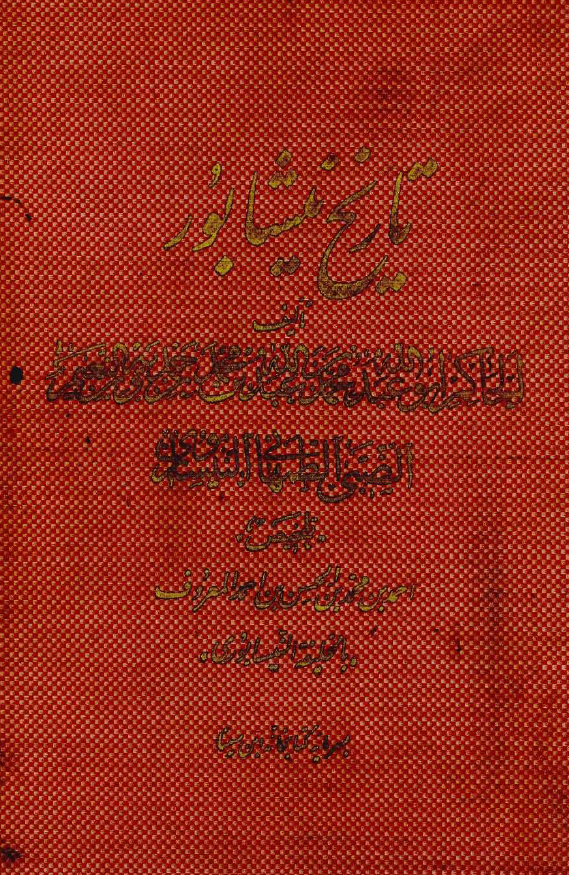 تاریخ نیشابور
تألیف
الحاکم ابو عبد الله محمد بن عبد الله بن محمد بن حمدویه بن نعیم
الضبی الطهمانی النیسابوری
تلخیص
احمد بن محمد بن الحسن بن احمد المعروف
بالخلیفة النیسابوری
بسرمایه کتابخانه ابن سینا